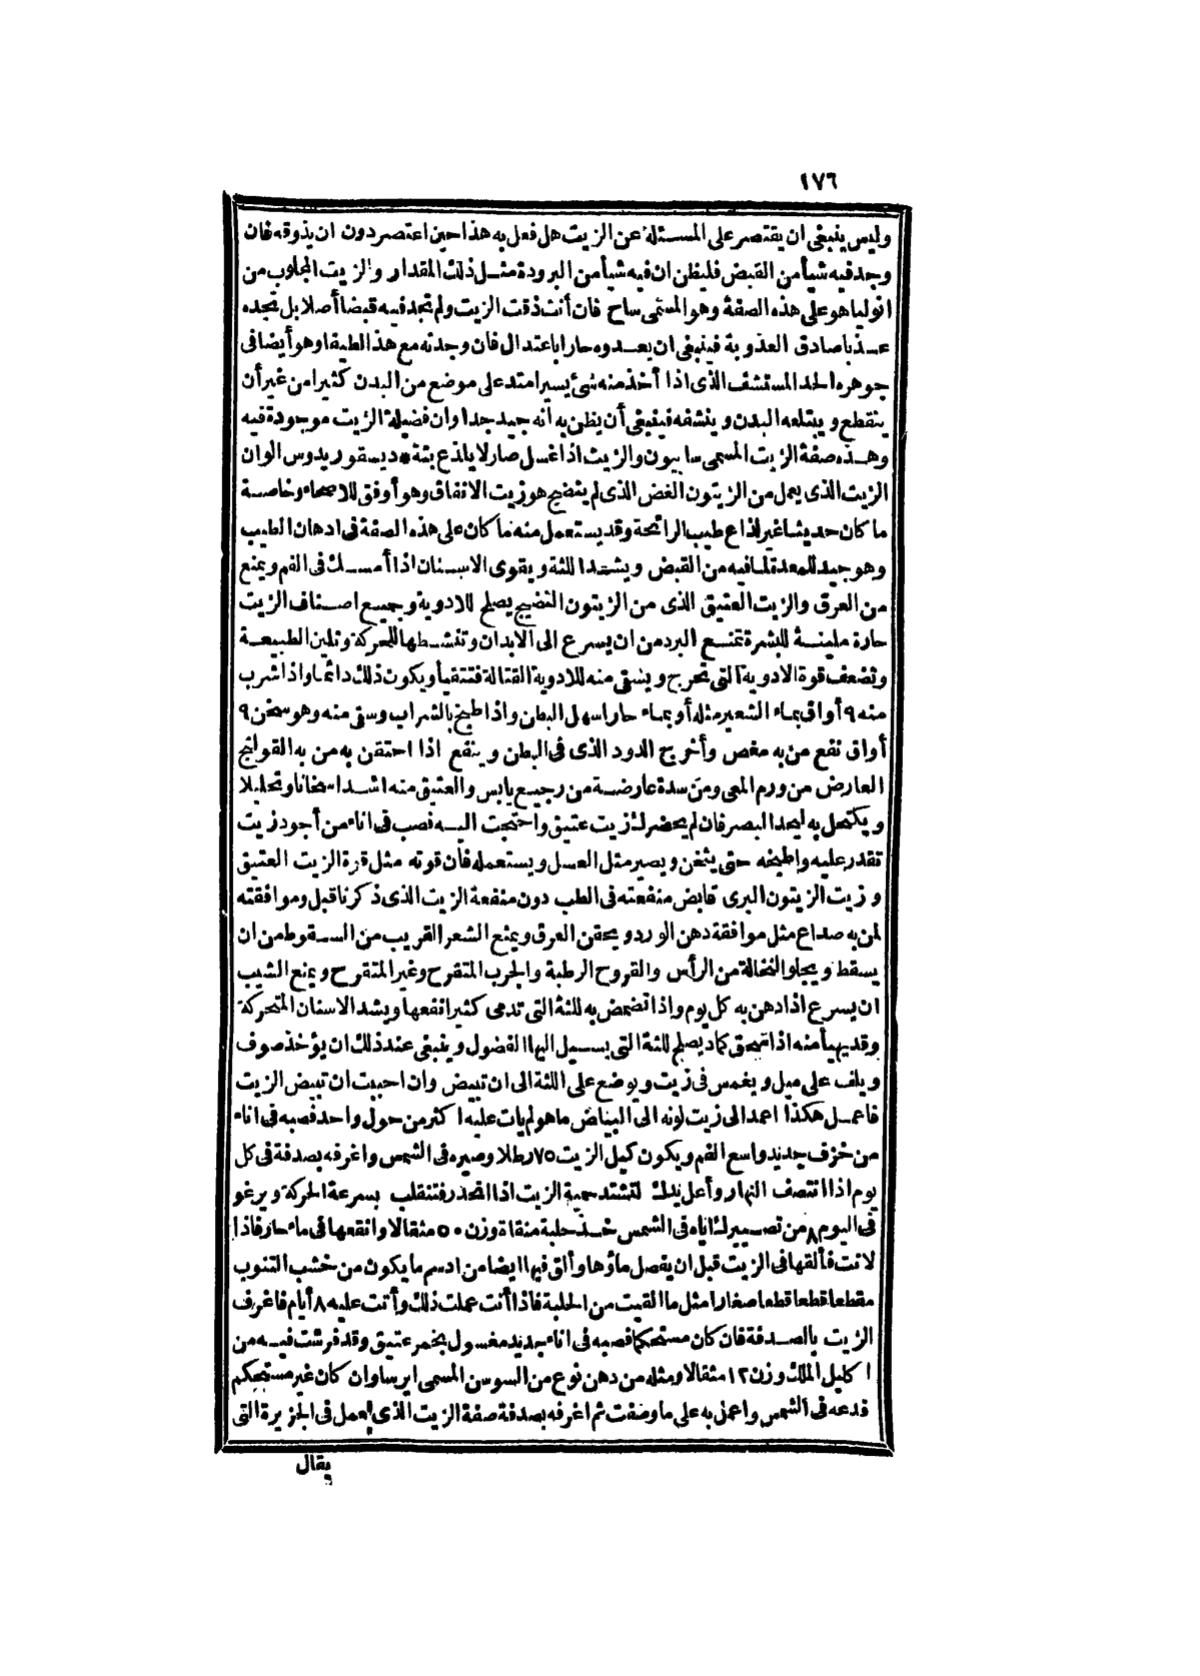 ١٧٦
وليس ينبغى ان يقتصر على المسئلة عن الزيت هل فعل به هذا حين اعتصر دون ان يذوقه فان
وجد فيه شيأ من القبض فليظن ان فيه شيأ من البرودة مثل ذلك المقدار والزيت المجلوب من
انوليا هو على هذه الصفة وهو المسمى ساح فان أنت ذقت الزيت ولم تجد فيه قبضا أصلا بل تجده
عذبا صادق العذوبة فينبغى ان يعدوه حارا باعتدال فان وجدته مع هذا لطيفا وهو أيضا فى
جوهره الحد المستشف الذى اذا أخذ منه شئ يسير امتد على موضع من البدن كثير من غير أن
ينقطع ويبتلعه البدن وينشفه فينبغى أن يظن به أنه جيد جدا وان فضيلة الزيت موجودة فيه
وهذه صفة الزيت المسمى سابيون والزيت اذا غسل صار لا يلذع بتة * ديسقوريدوس الوان
الزيت الذى يعمل من الزيتون الغض الذى لم ينضج هو زيت الانفاق وهو أوفق للاصحاء وخاصة
ما كان حديثا غير لذاع طيب الرائحة وقد يستعمل منه ما كان على هذه الصفة فى ادهان الطيب
وهو جيد للمعدة لما فيه من القبض ويشد اللثة ويقوى الاسنان اذا أمسك فى الفم ويمنع
من العرق والزيت العتيق الذى من الزيتون النضيج يصلح للادوية وجميع اصناف الزيت
حارة ملينة للبشرة تمنع البرد من ان يسرع الى الابدان وتنشطها للحركة وتلين الطبيعة
وتضعف قوة الادوية التى تجرح ويسقى منه للادوية القتالة فتتقيأ ويكون ذلك دائما واذا شرب
منه ٩ أواق بماء الشعير مثله أو بماء حار اسهل البطن واذا طبخ بالشراب وسقى منه وهو سخن ٩
أواق نفع من به مغص وأخرج الدود الذى فى البطن وينفع اذا احتقن به من به القولنج
العارض من ورم المعى ومن سدة عارضة من رجيع يابس والعتيق منه اشد اسخانا وتحليلا
ويكتحل به ليحد البصر فان لم يحضرك زيت عتيق واحتجت اليه فصب فى اناء من أجود زيت
تقدر عليه واطبخه حتى يثخن ويصير مثل العسل ويستعمله فان قوته مثل قوة الزيت العتيق
وزيت الزيتون البرى قابض منفعته فى الطب دون منفعة الزيت الذى ذكرنا قبل وموافقته
لمن به صداع مثل موافقة دهن الورد ويحقن العرق ويمنع الشعر القريب من السقوط من ان
يسقط ويجلو النخالة من الرأس والقروح الرطبة والجرب المتقرح وغير المتقرح ويمنع الشيب
ان يسرع اذا دهن به كل يوم واذا تمضمض به للثة التى تدمى كثيرا نفعها ويشد الاسنان المتحركة
وقد يهيأ منه اذا سحق كماد يصلح للثة التى يسيل اليها الفضول وينبغى عند ذلك ان يؤخذ صوف
ويلف على ميل ويغمس فى زيت ويوضع على اللثة الى ان تبيض وان احببت ان تبيض الزيت
فاعمل هكذا اعمد الى زيت لونه الى البياض ما هو لم يات عليه اكثر من حول واحد فصبه فى اناء
من خزف جديد واسع الفم ويكون كيل الزيت ٧٥ رطلا وصيره فى الشمس واغرفه بصدفة فى كل
يوم اذا انتصف النهار وأعل يدك لتشتد حمية الزيت اذا انحدر فتنقلب بسرعة الحركة ويرغو
فى اليوم ٨ من تصييرك اياه فى الشمس خذ حلبة منقاة وزن ٥٠ مثقالا وانقعها فى ماء حار فاذا
لانت فألقها فى الزيت قبل ان يفصل ماؤها وألق فيها ايضا من ادسم ما يكون من خشب التنوب
مقطعا قطعا قطعا صغارا مثل ما القيت من الحلبة فاذا أنت عملت ذلك وأتت عليه ٨ أيام فاغرف
الزيت بالصدفة فان كان مستحكما فصبه فى اناء جديد مغسول بخمر عتيق وقد فرشت فيه من
اكليل الملك وزن ١٢ مثقالا ومثله من دهن نوع من السوسن المسمى ايرسا وان كان غير مستحكم
فدعه فى الشمس واعمل به على ما وصفت ثم اغرفه بصدفة صفة الزيت الذى يعمل فى الجزيرة التى
يقال